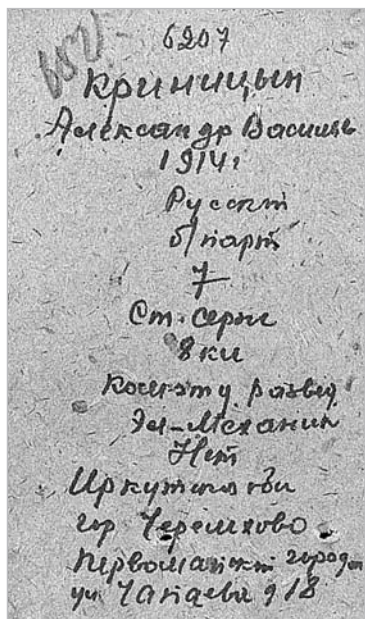 6207
Криницын
Александр Василь
1914г
Русскт
б/парт
7
Ст. серж
8 кл
развед
Эл-Механик
Нет
Иркутска обл
гор Черемхово
Первомайскт городок
ул Чапаева д 18